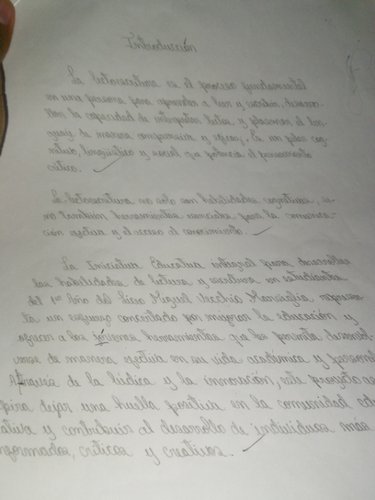 Introducción
La lectoescritura es el proceso fundamental
en una persona para aprender a leer y escribir, desarro-
llar la capacidad de interpretar letras y plasmar el len-
guaje de manera comprensiva y eficaz. Es un pilar cog-
nitivo, lingüístico y social que potencia el pensamiento
crítico.
La lectoescritura no sólo son habilidades cognitivas, si-
no también herramientas esenciales para la comunica-
ción efectiva y el acceso al conocimiento.
La Iniciativa Educativa integral para desarrollar
las habilidades de lectura y escritura en estudiantes
del 1° año del Liceo Miguel represen-
ta un esfuerzo concertado por mejorar la educación y
ofrecer a los jóvenes herramientas que les permita desenvol-
verse de manera efectiva en su vida académica y personal.
Através de la lúdica y la innovación, este proyecto as-
pira dejar una huella positiva en la comunidad edu-
cativa y contribuir al desarrollo de individuos más
informados, críticos y creativos.